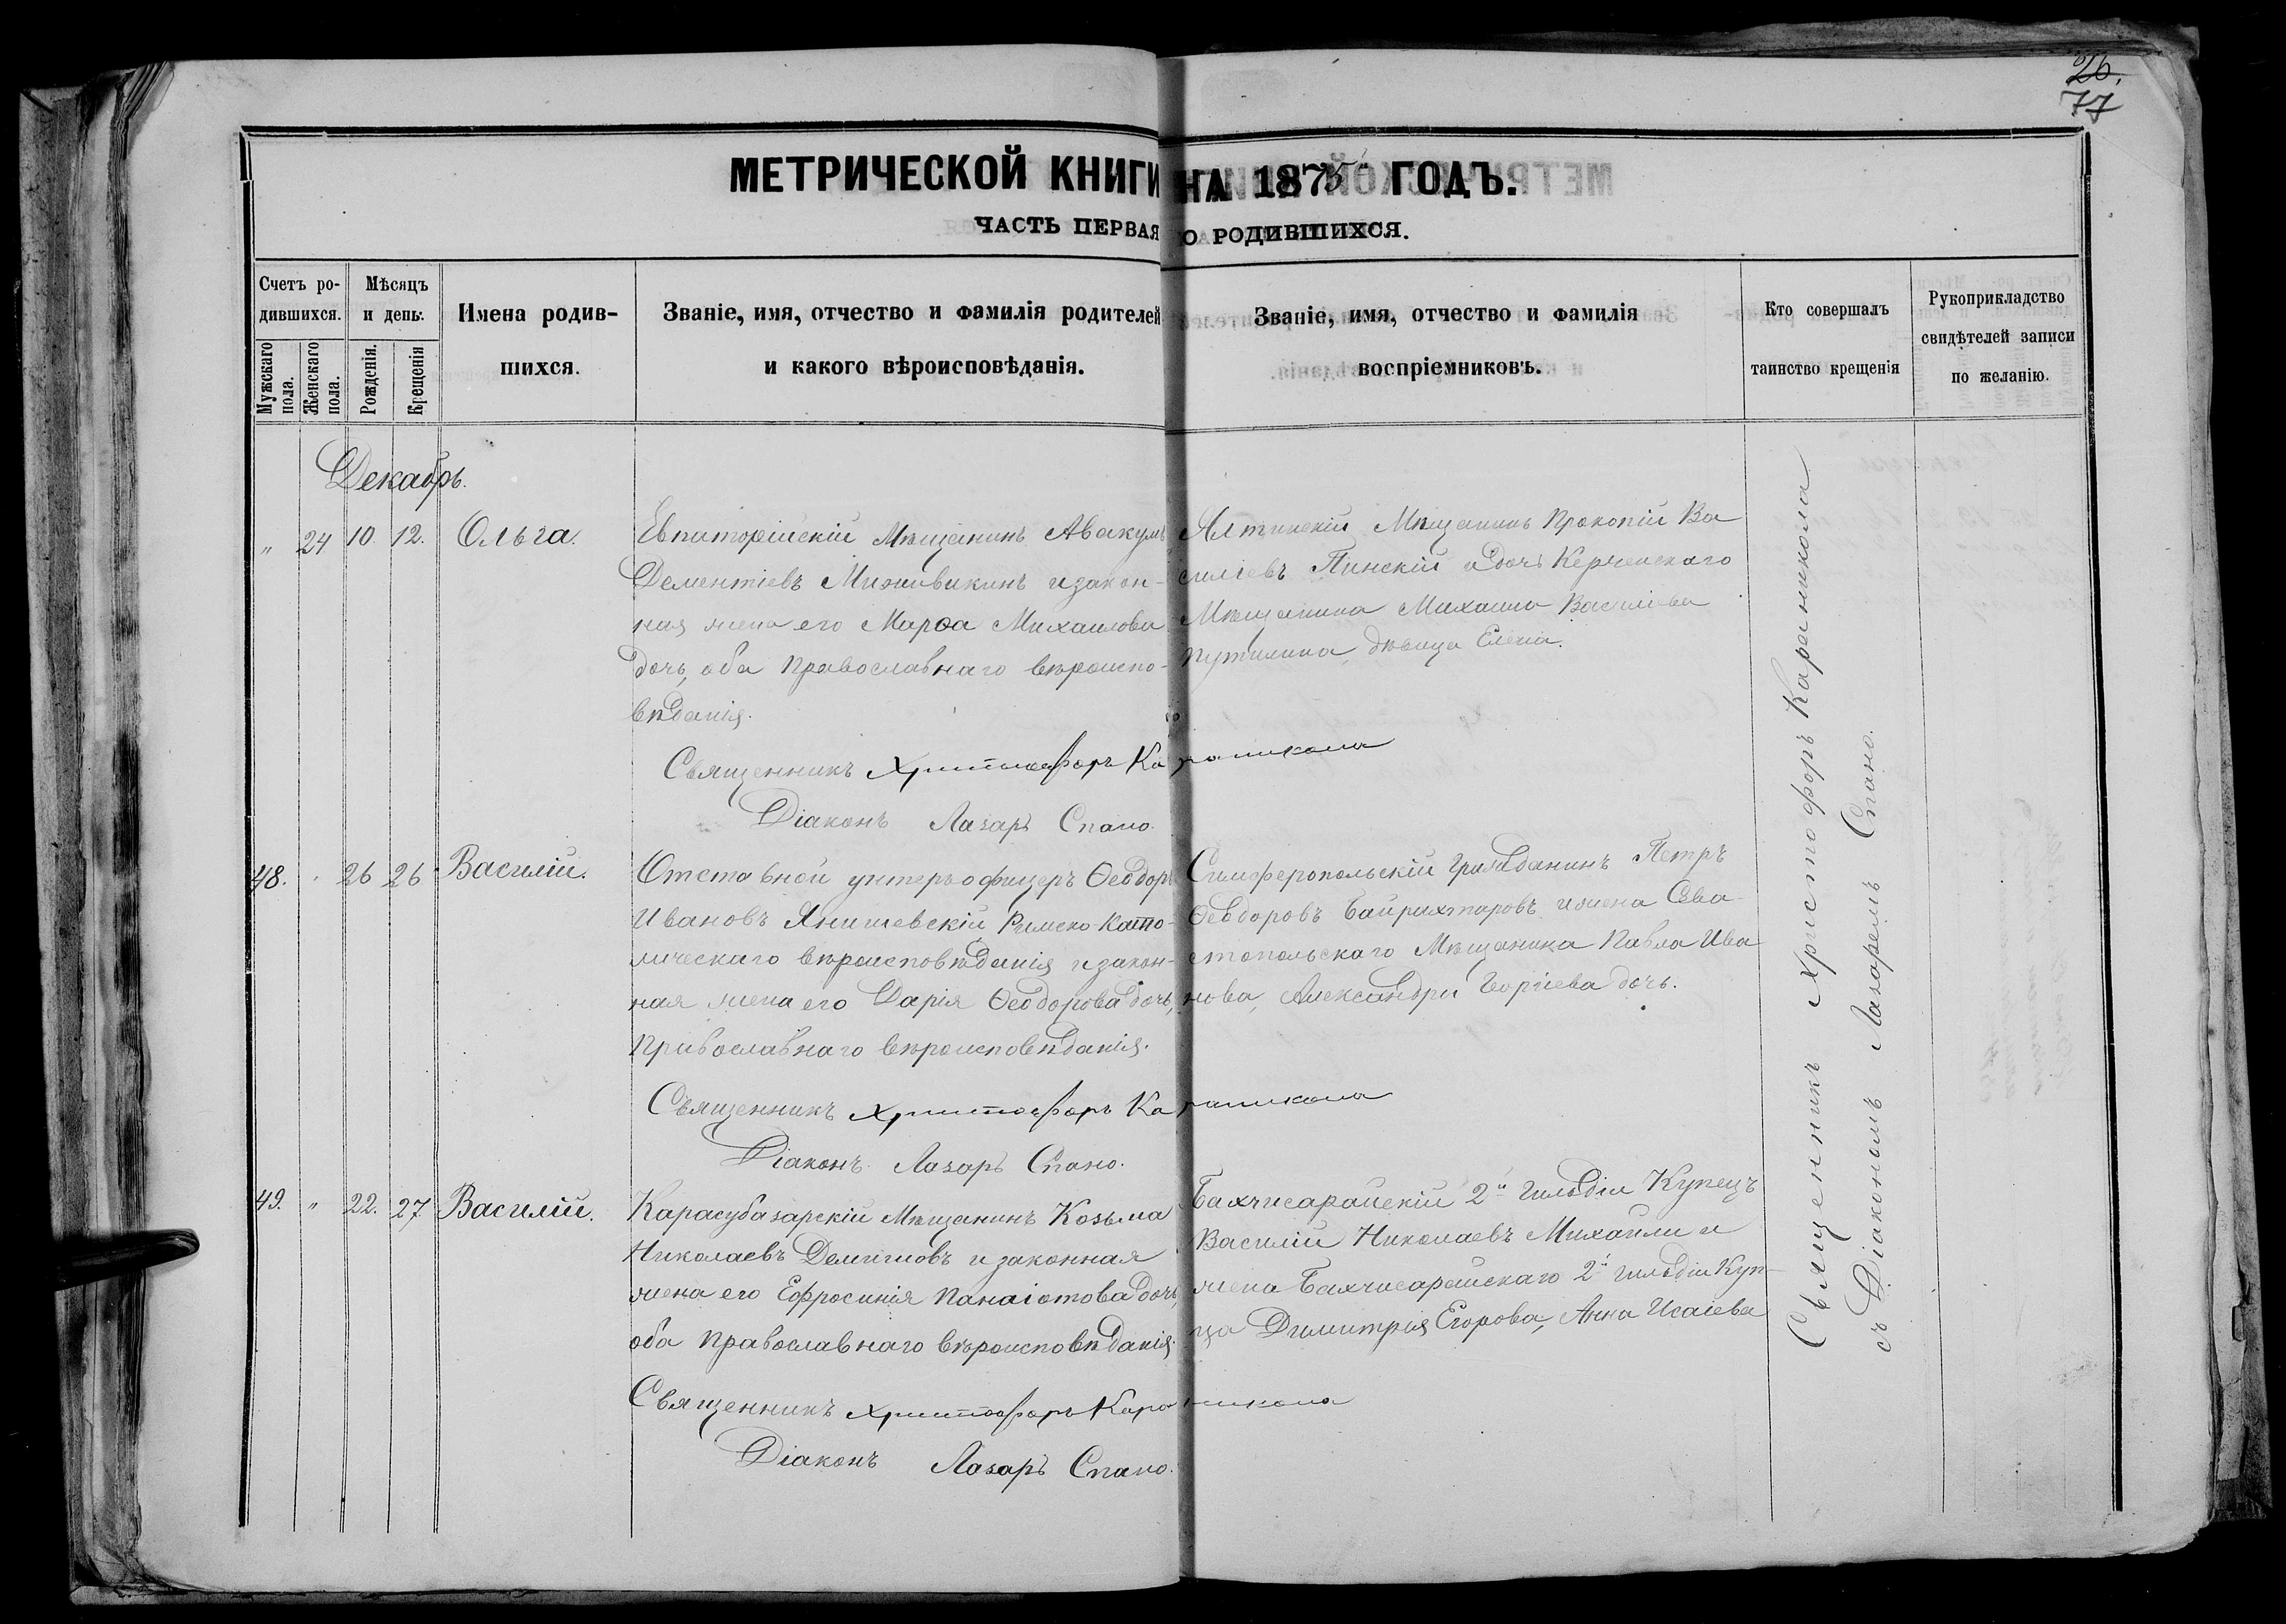 26.
77
МЕТРИЧЕСКОЙ КНИГИ НА 1875 ГОДЪ.
ЧАСТЬ ПЕРВАЯ О РОДИВШИХСЯ.
Счетъ ро-
дившихся.
Мужскаго пола.
Женскаго пола.
Мѣсяцъ
и день.
Рожденія.
Крещенія
Имена родив-
шихся.
Званіе, имя, отчество и фамилія родителей
и какого вѣроисповѣданія.
Званіе, имя, отчество и фамилія
воспріемниковъ.
Кто совершалъ
таинство крещенія
Рукоприкладство
свидѣтелей записи
по желанію.
Декабрь.
" 24 10. 12. Ольга.
Евпаторійскій Мѣщанинъ Авакумъ
Дементіевъ и закон-
ная жена его Марѳа Михаилова
дочь, оба Православнаго вѣроиспо-
вѣданія.
Ялтинскій Мѣщанинъ Прокопій Ва
силіевъ Пинскій и дочь Керченскаго
Мѣщанина Михаила Василіева
Путилина, дѣвица Елена.
Священникъ Христофоръ Караникола
Діаконъ Лазарь Спано.
48. " 26 26 Василій.
Отставной унтеръ-офицеръ Ѳеодоръ
Ивановъ Янишевскій Римско-Като-
лическаго вѣроисповѣданія и закон-
ная жена его Дарія Ѳеодорова дочь,
Православнаго вѣроисповѣданія.
Симферопольскій Гражданинъ Петръ
Ѳеодоровъ Байрахтаровъ и жена Сева-
стопольскаго Мѣщанина Павла Ива
нова, Александра Георгіева дочь.
Священникъ Христофоръ Караникола
Діаконъ Лазарь Спано.
49. " 22. 27 Василій.
Карасубазарскій Мѣщанинъ Козьма
Николаевъ и законная
жена его Ефросинія Панаіотова дочь,
оба Православнаго вѣроисповѣданія.
Бахчисарайскій 2й Гильдіи Купецъ
Василій Николаевъ Михайли и
жена Бахчисарайскаго 2й Гильдіи Куп-
ца Димитрія Егорова, Анна Исаіева
Священникъ Христофоръ Караникола
Діаконъ Лазарь Спано.
Священникъ Христофоръ Караникола
съ Діакономъ Лазаремъ Спано.